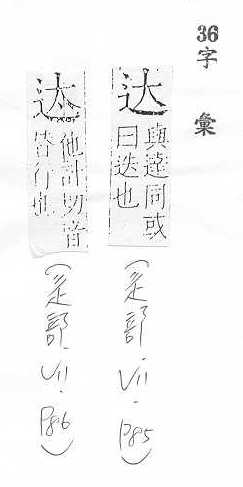 36字 彙
达 與達同或
曰迭也
(辵部.VII.P85)
迖 他計切音
替行也
(辵部.VII.P86)